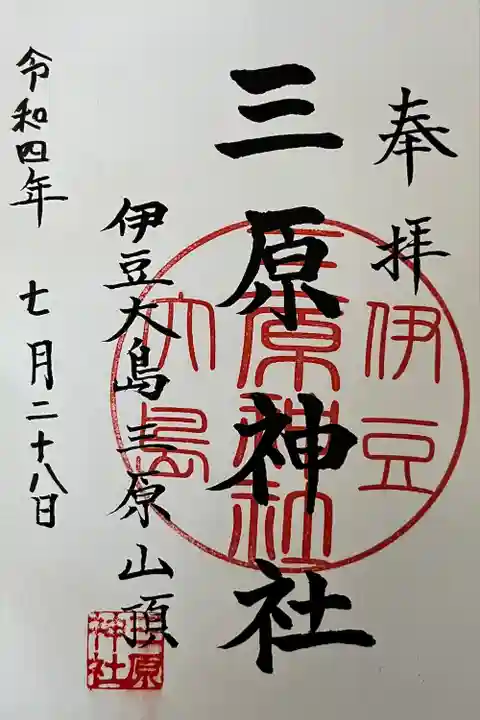 奉拝
三原神社
伊豆大島三原山頂
令和四年 七月二十八日
伊豆
三原神社
大島
三原
神社